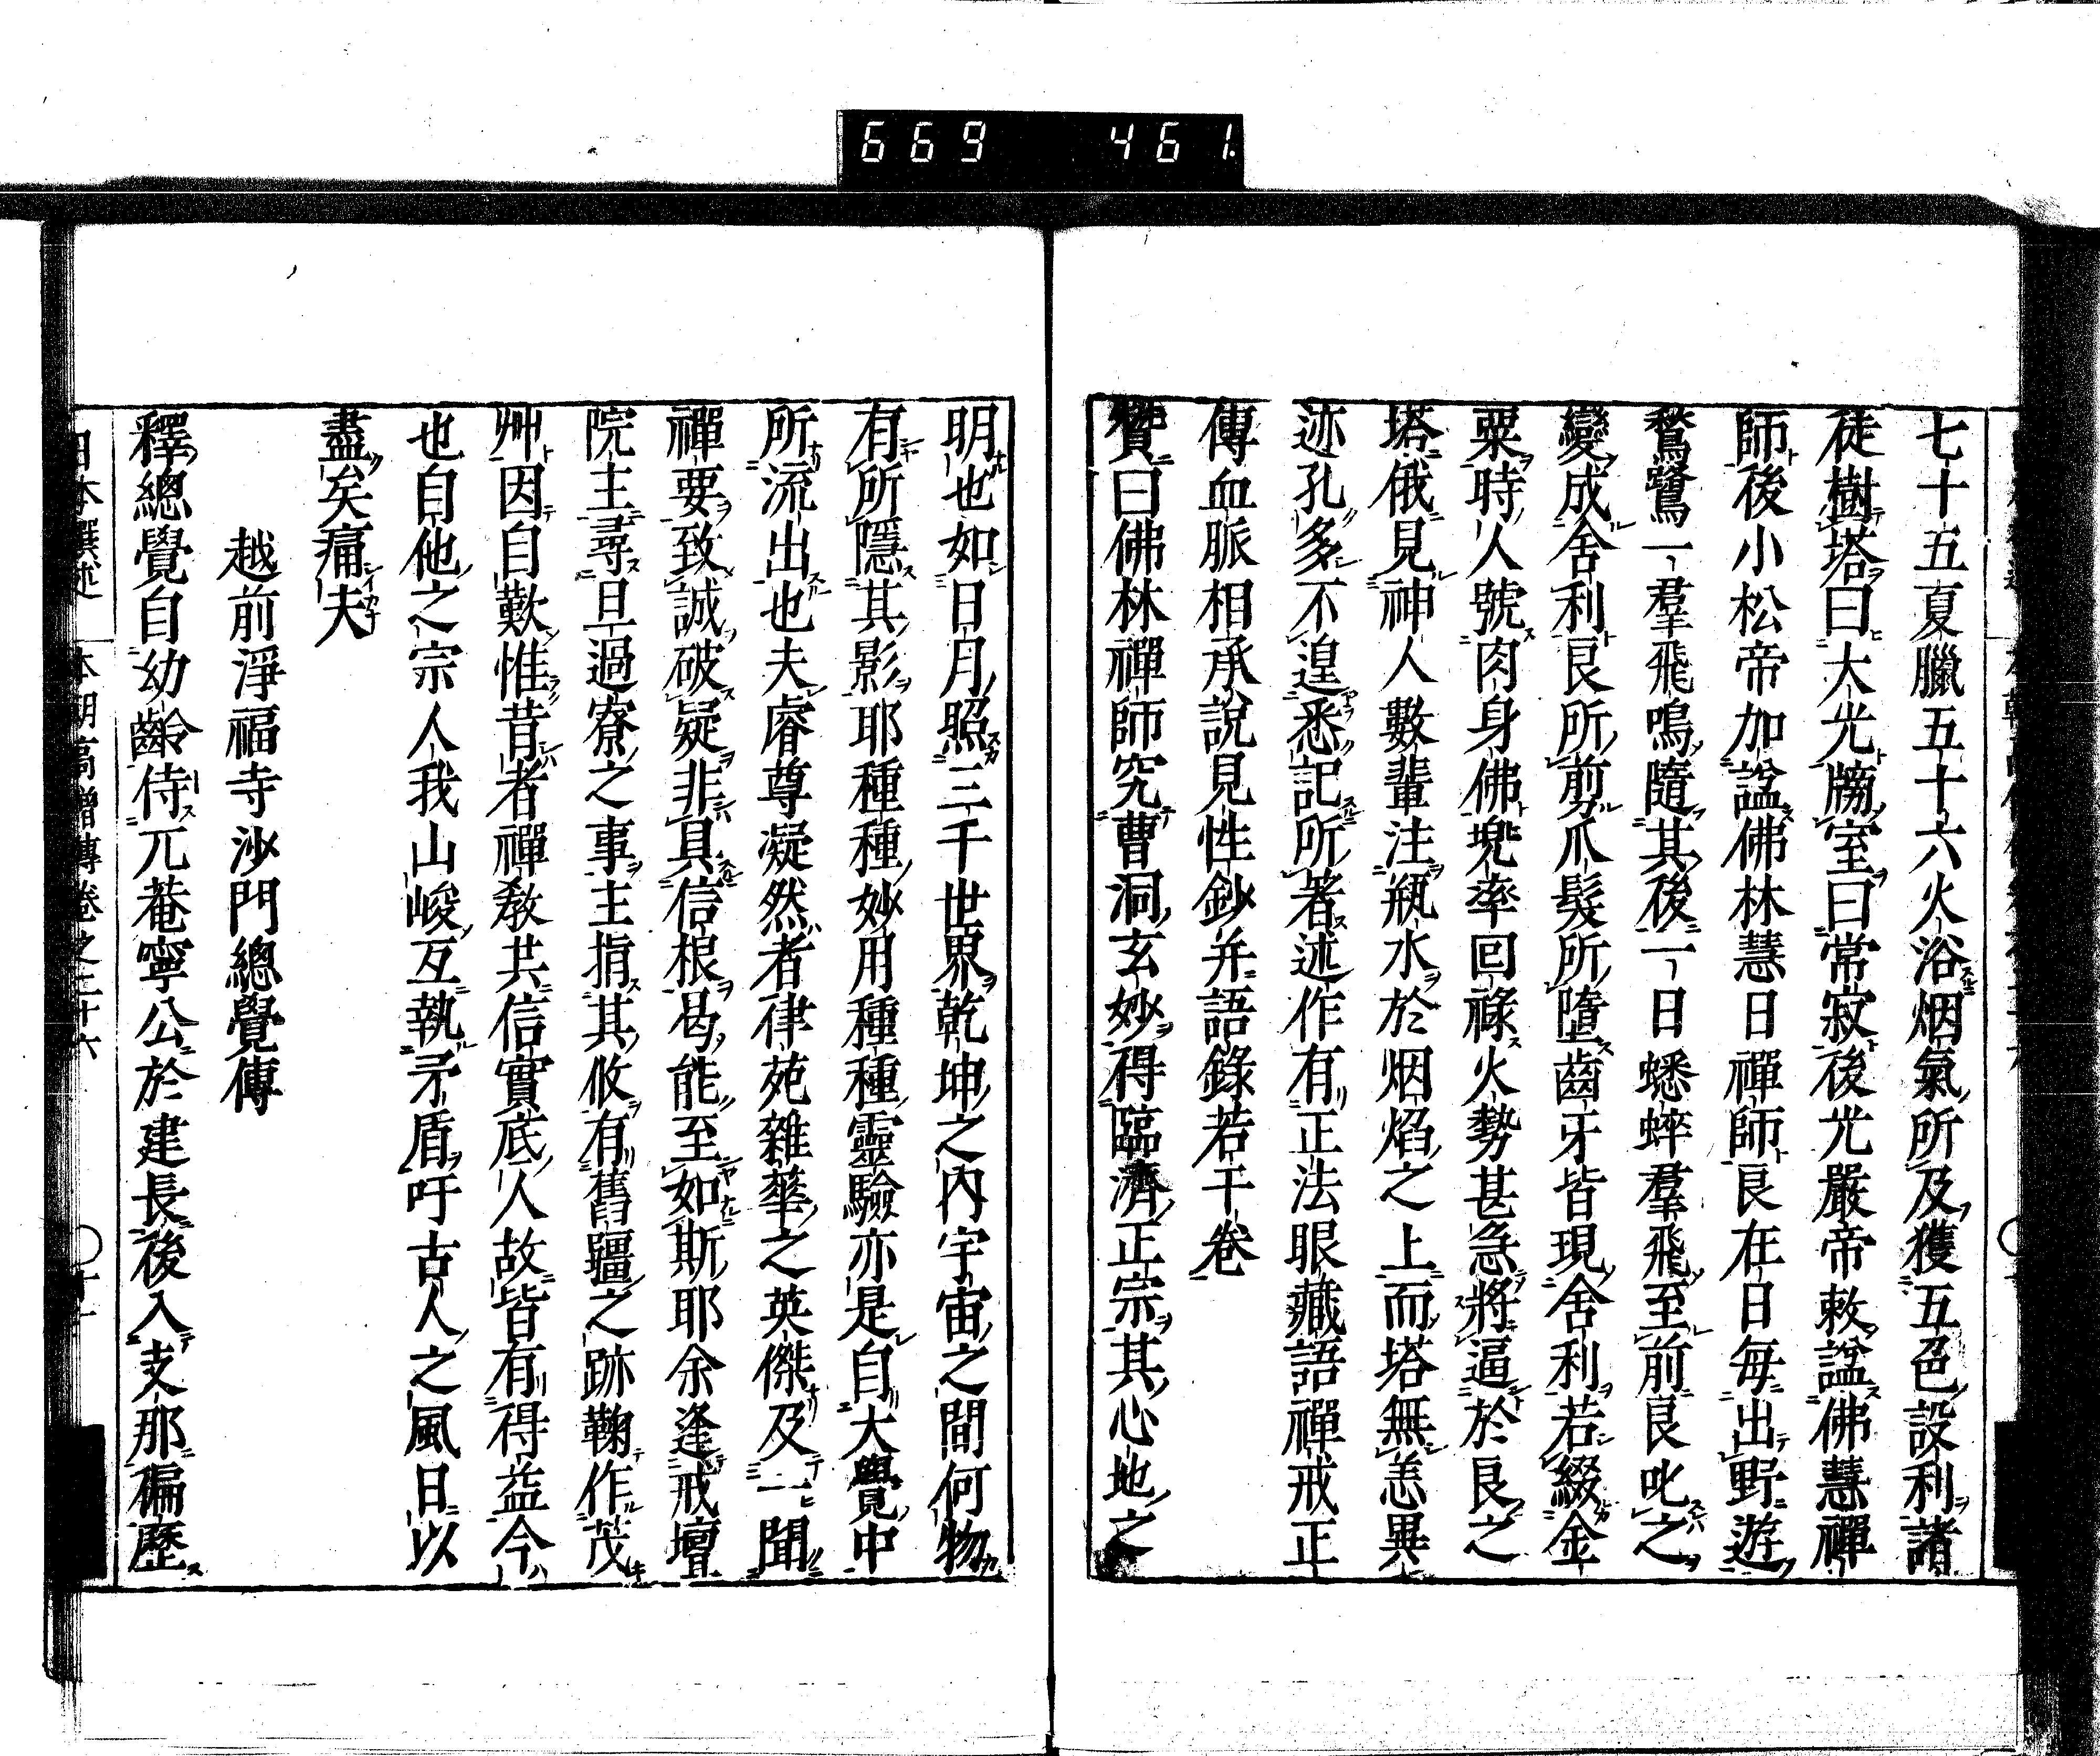 669 461.
七十五夏臘五十六火浴烟氣所及獲五色設利諸
徒樹塔曰大光牓室曰常寂後光嚴帝敕諡佛慧禪
師後小松帝加諡佛林慧日禪師良在日每出野遊
鶖鷺一羣飛鳴隨其後一日蟋蟀羣飛至前良叱之
變成舍利良所剪爪髮所墮齒牙皆現舍利若綴金
粟時人號肉身佛兜率回祿火勢甚急將逼於良之
塔俄見神人數輩注瓶水於烟焰之上而塔無恙異
迹孔多不遑悉記所著述作有正法眼藏語禪戒正
傳血脈相承說見性鈔并語錄若干卷
贊曰佛林禪師究曹洞玄妙得臨濟正宗其心地之
明也如日月照三千世界乾坤之內宇宙之間何物
有所隱其影耶種種妙用種種靈驗亦是自大覺中
所流出也夫睿尊凝然者律苑雜華之英傑及一聞
禪要致誠破疑非具信根曷能至如斯耶余逢戒壇
院主尋旦過寮之事主指其攸有舊疆之跡鞠作茂
艸因自歎惟昔者禪教共信實底人故皆有得益今
也自他之宗人我山峻互執矛盾吁古人之風日以
盡矣痛夫
越前淨福寺沙門總覺傳
釋總覺自幼齡侍兀菴寧公於建長後入支那徧歷
日本撰述 本朝高僧傳卷之二十六